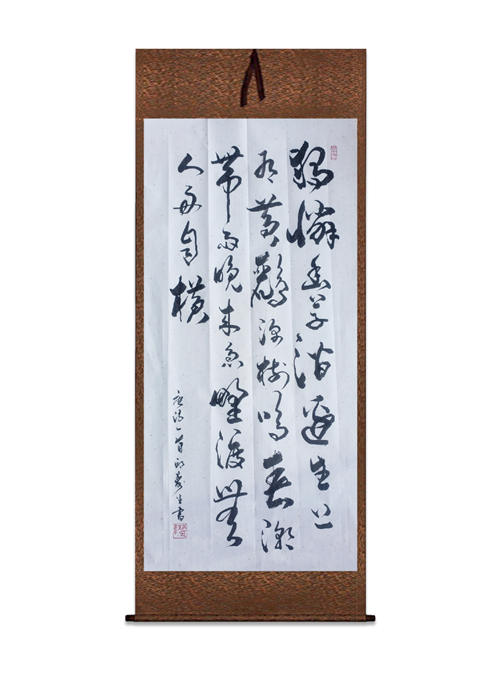 獨憐幽草澗邊生上
有黃鸝深樹鳴春潮
帶雨晚來急野渡無
人舟自橫
唐詩一首書